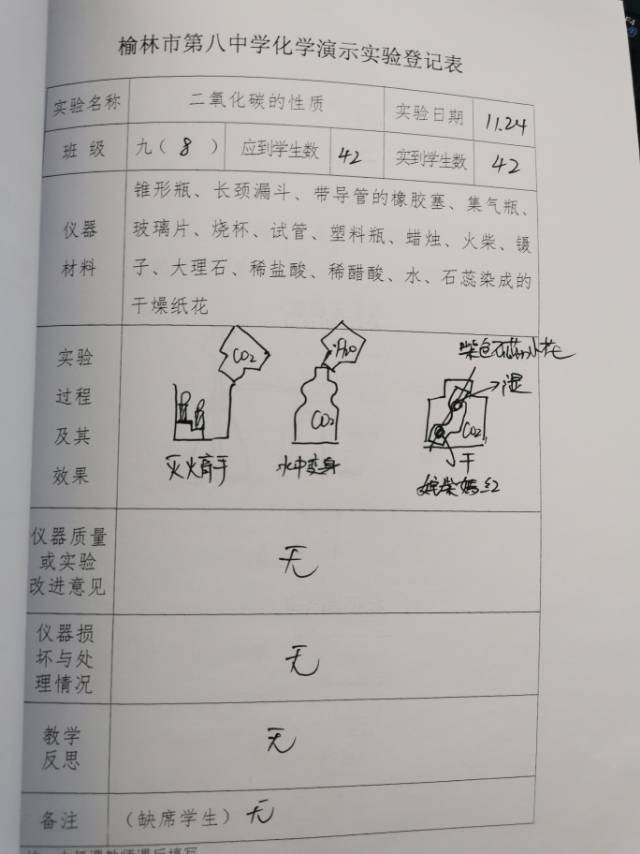 榆林市第八中学化学演示实验登记表
实验名称 二氧化碳的性质 实验日期 11.24
班 级 九（ 8 ） 应到学生数 42 实到学生数 42
仪器
材料
锥形瓶、长颈漏斗、带导管的橡胶塞、集气瓶、
玻璃片、烧杯、试管、塑料瓶、蜡烛、火柴、镊
子、大理石、稀盐酸、稀醋酸、水、石蕊染成的
干燥纸花
实验
过程
及其
效果
CO2
H2O
紫色石蕊小花
湿
CO2
CO2
干
灭火高手
水中变身
姹紫嫣红
仪器质量
或实验
改进意见
无
仪器损
坏与处
理情况
无
教学
反思
无
备注 （缺席学生） 无